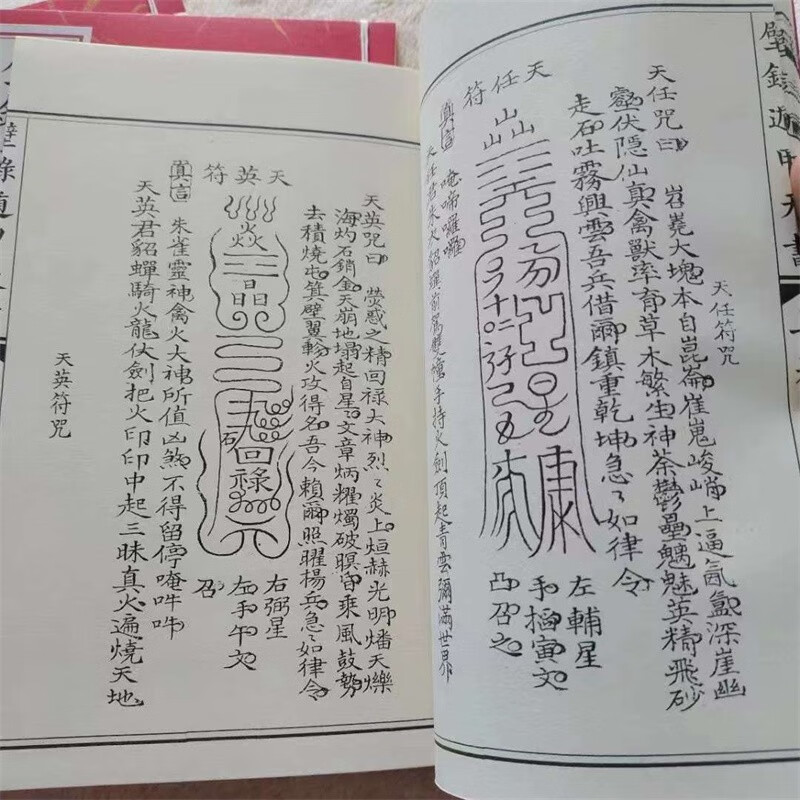 天任符咒
天任咒曰 岧嶤大塊本自崑崙崔嵬峻峭上逼氤氳深崖幽
壑伏隱仙真禽獸率育草木繁生神荼鬱壘魑魅英精飛砂
走石吐霧興雲吾兵借爾鎮重乾坤急〻如律令
天任符
左輔星
手掐寅文
凸召之
真言 唵啼囉囉
手持火劍頂起青雲彌滿世界
天英咒曰 熒惑之精回祿大神烈〻炎上烜赫光明燔天爍
海灼石銷金天崩地塌起自星〻文章炳耀燭破暝昏乘風鼓勢
去積燒屯箕壁翼軫火攻得名吾今賴爾照曜楊兵急〻如律令
天英符
焱
晶
回祿
右弼星
左手午文
召
真言 朱雀靈神禽火大神所值凶煞不得留停唵吽吽
天英君貂蟬騎火龍仗劍把火印印中起三昧真火遍燒天地
天英符咒